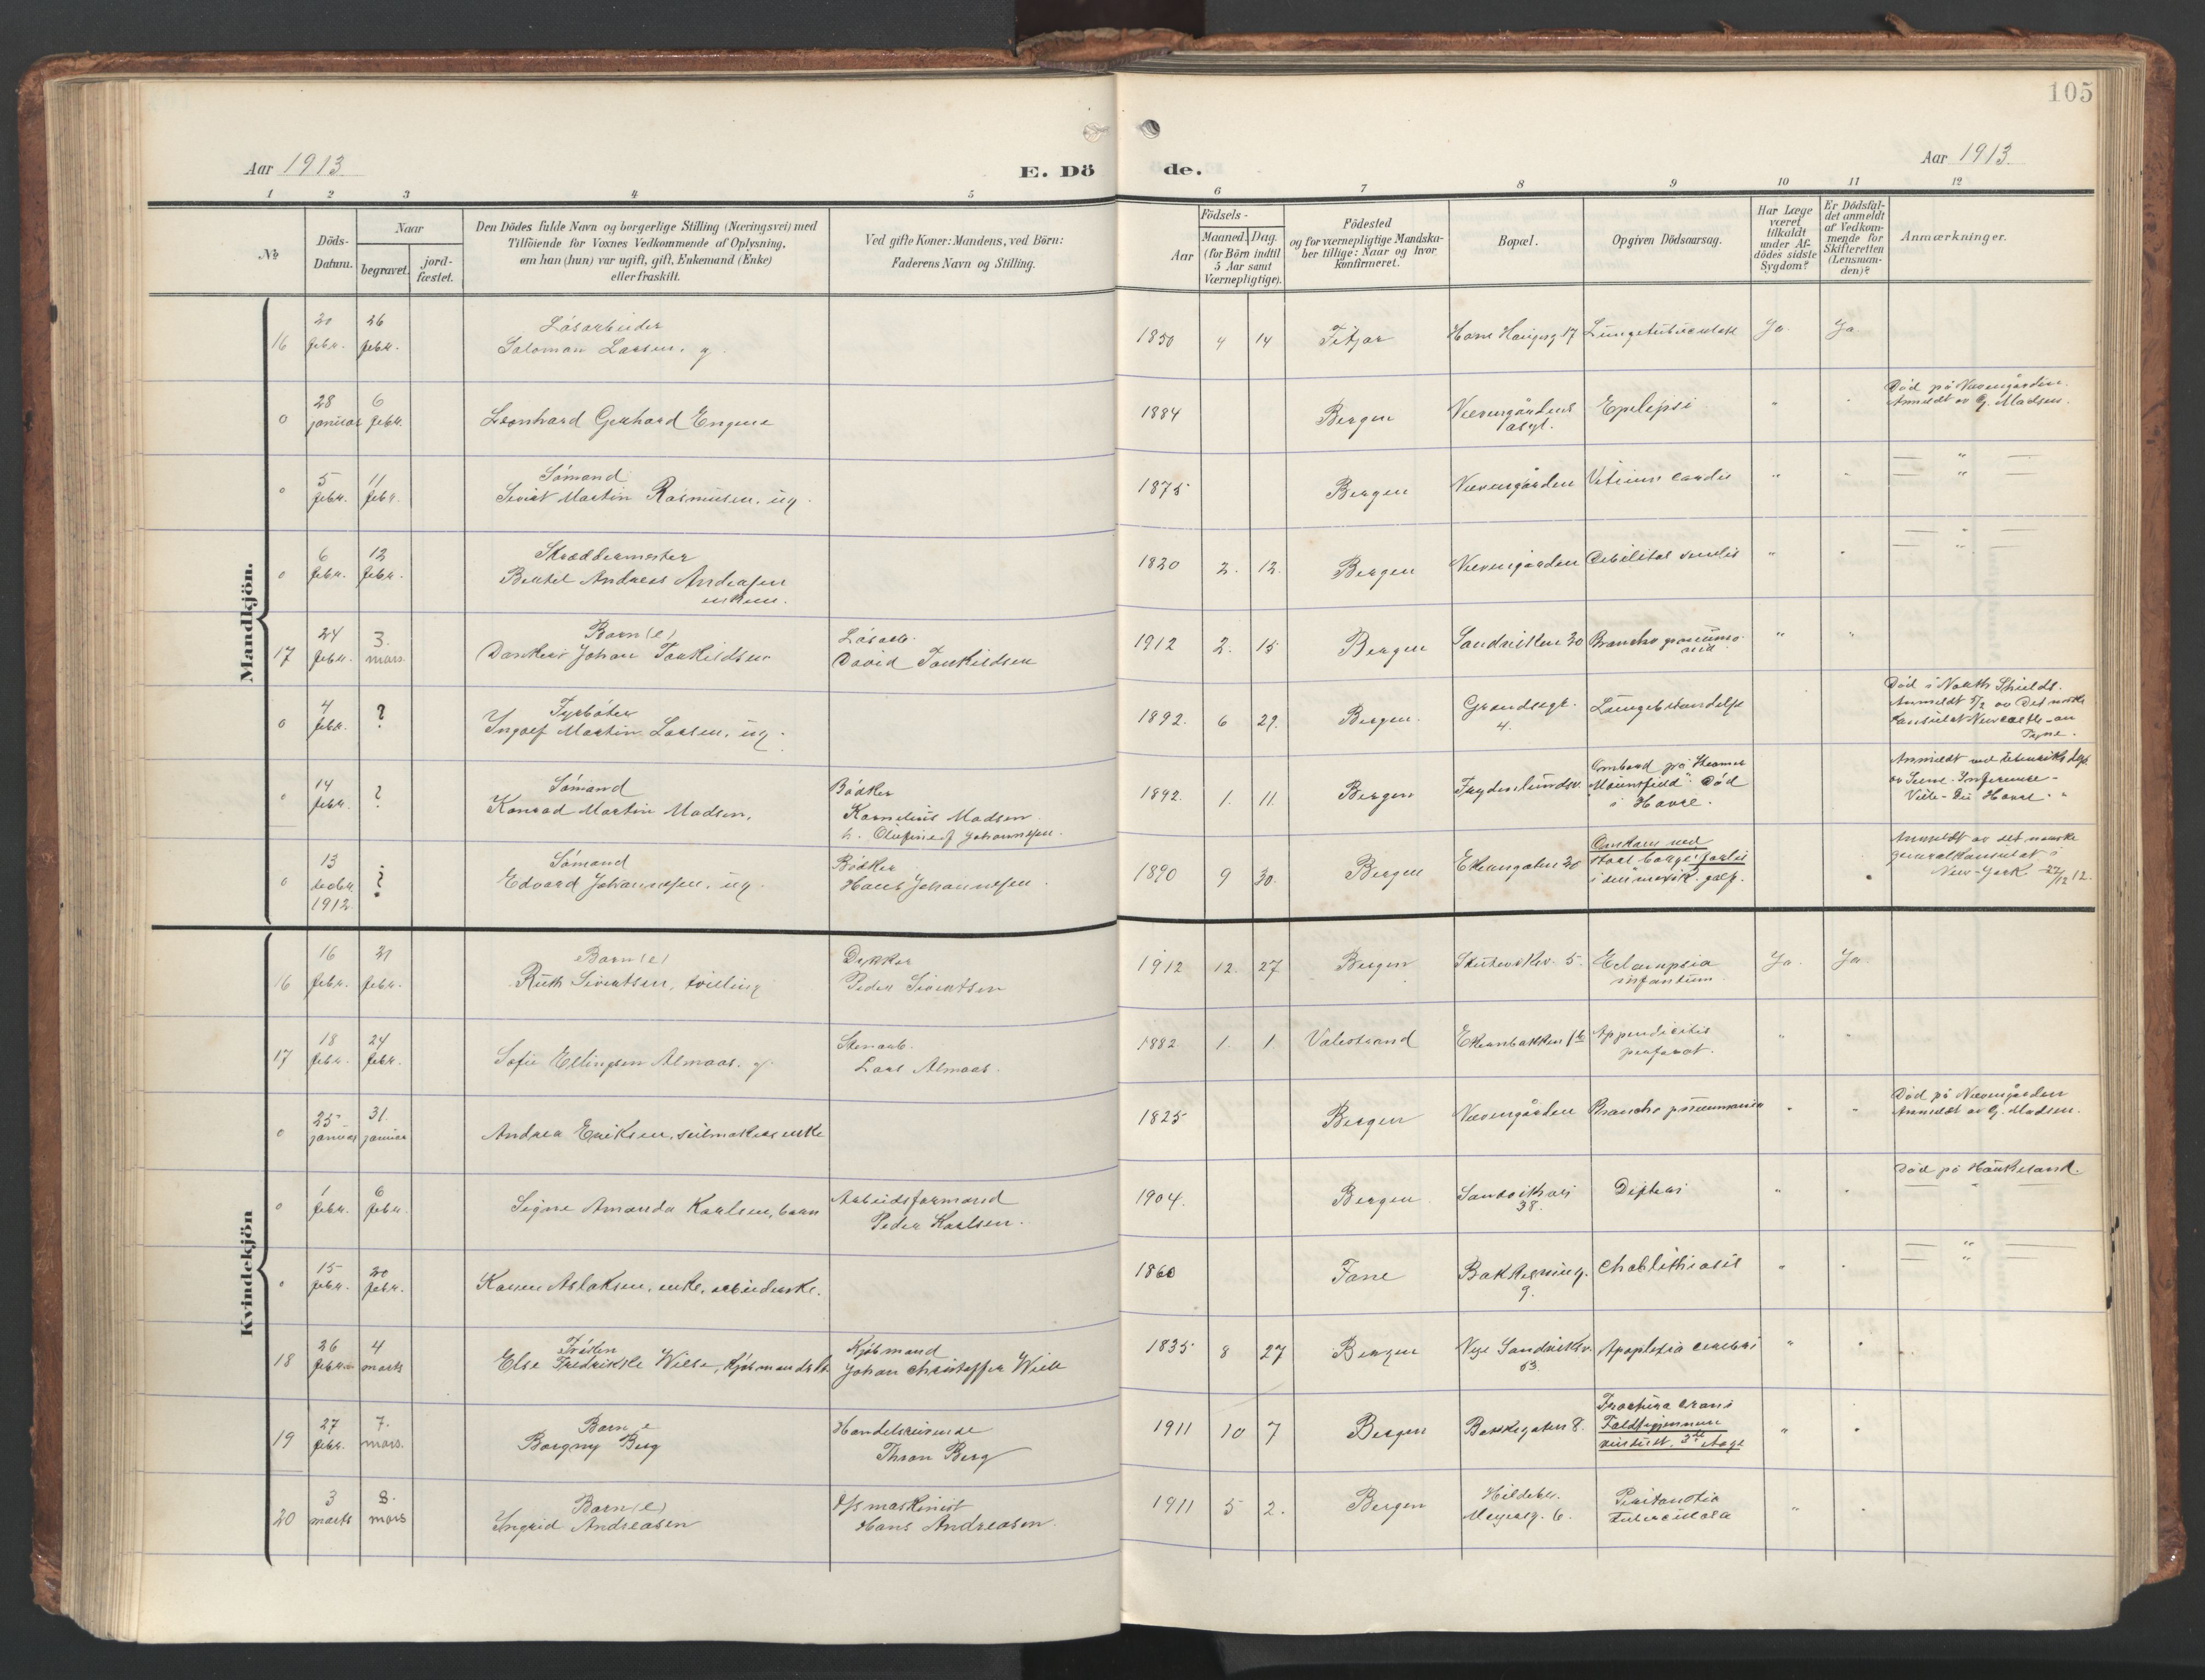 105
Aar 1913
E. Dö
de.
Aar 1913.
1 2 3 4 5 6 7 8 9 10 11 12
No
Döds-
Datum.
Naar
begravet.
jord-
fæstet.
Den Dödes fulde Navn og borgerlige Stilling (Næringsvei) med
Tilföiende for Voxnes Vedkommende af Oplysning,
om han (hun) var ugift, gift, Enkemand (Enke)
eller fraskilt.
Ved gifte Koner: Mandens, ved Börn:
Faderens Navn og Stilling.
Födsels-
Aar
Maaned. Dag.
(for Börn indtil
5 Aar samt
Værnepligtige).
Födested
og for værnepligtige Mandska-
ber tillige: Naar og hvor
Konfirmeret.
Bopæl.
Opgiven Dödsaarsag.
Har Læge
været
tilkaldt
under Af-
dödes sidste
Sygdom?
Er Dödsfal-
det anmeldt
af Vedkom-
mende for
Skifteretten
(Lensman-
den)?
Anmærkninger.
Mandkjön.
16 20 febr. 26 febr.
Løsarbeider
Salomon Larsen, g
1850 4 14 Fitjar Hans Haugesg 17 Lungetuberculose Ja. Ja
0 28 januar 6 febr.
Leonhard Gerhard Engene
1884 Bergen Nevengårdens asyl. Epilepsi " "
Död på Nevengården.
Anmeldt av G. Madsen.
0 5 febr. 11 febr.
Sømand
Sivert Martin Rasmusen, ug.
1875 Bergen Nevengården Vitium cordis " "
— " —
— " —
0 6 febr. 12 febr.
Skræddermester
Bertel Andreas Andreasen
enkem.
1820 2. 12. Bergen Nevengården Debilitas senilis " "
— " —
— " —
17 24 febr. 3. mars
Barn (e)
Danker Johan Torkildsen
Løsarb.
David Torkildsen
1912 2. 15 Bergen Sandviken 30 Broncho pneumo-
" "
0 4 febr. ?
Fyrbøter
Ingolf Martin Larsen, ug.
1892. 6 29. Bergen. 4. Lungebetændelse
Död i North Shields.
Anmeldt 5/2 av Det norske
Konsulat Newcastle-on
Tyne.
0 14 febr. ?
Sømand
Konrad Martin Madsen,
Bødker
Kornelius Madsen
h. Olufine f Johannesen.
1892. 1. 11. Bergen Frydenlundsv.
Ombord på Steamer
"Mounsfield". Död
i Havre.
0 13 decbr. 1912 ?
Sømand
Edvard Johannesen, ug.
Bødker
Hans Johannesen.
1890 9 30. Bergen Ekrengaten 20
Omkom med
forlis
i den mexik. golf.
Anmeldt av det norske
generalkonsulat i
New-York. 27/12 12.
Kvindekjön
16 16 febr. 21 febr.
Barn (e)
Ruth Sivertsen, tvilling
Dækker
Peder Sivertsen
1912 12. 27 Bergen Skuteviksv. 5. Eclampsia
infantum Ja. Ja.
17 18 febr. 24 febr.
Sofie Ellingsen Almaas. g.
Stenarb.
Lars Almaas.
1882 1. 1 Valestrand Ekrenbakken 1b Appendicitis
perforat. " "
0 25 januar 31. januar
Andrea Eriksen, seilmakers enke
1825 Bergen Nevengården Broncho pneumonia " "
Död på Nevengården
Anmeldt av G. Madsen.
0 1 febr. 6 febr.
Signe Amanda Karlsen, barn
Arbeidsformand
Peder Karlsen.
1904. Bergen Sandviksvei
38. Difteri " "
Död på Haukeland.
— " —
0 15 febr. 20 febr.
Karen Aslaksen, enke, arbeiderske.
1860 Fane
9. Cholelithiasis " "
— " —
— " —
18 26 februar 4 marts
Frøken
Else Fredrikke Wiese, kjøbmandsdt.
Kjøbmand
Johan Christoffer Wiese
1835 8 27 Bergen Nye Sandviksv.
53. Apoplexia cerebri " "
19 27 febr. 7. mars.
Barn e
Borgny Berg
Handelsreisende
Thron Berg
1911 10 7 Bergen Bakkegaten 8.
Fractura cranii
Faldt igjennem
vinduet. 3die etage " "
20 3 marts 8. mars
Barn (e)
Ingrid Andreasen
D/s maskinist
Hans Andreasen.
1911 5 2. Bergen Hildebr.
Meyersg. 6.
Peritonitis
tuberculosa " "